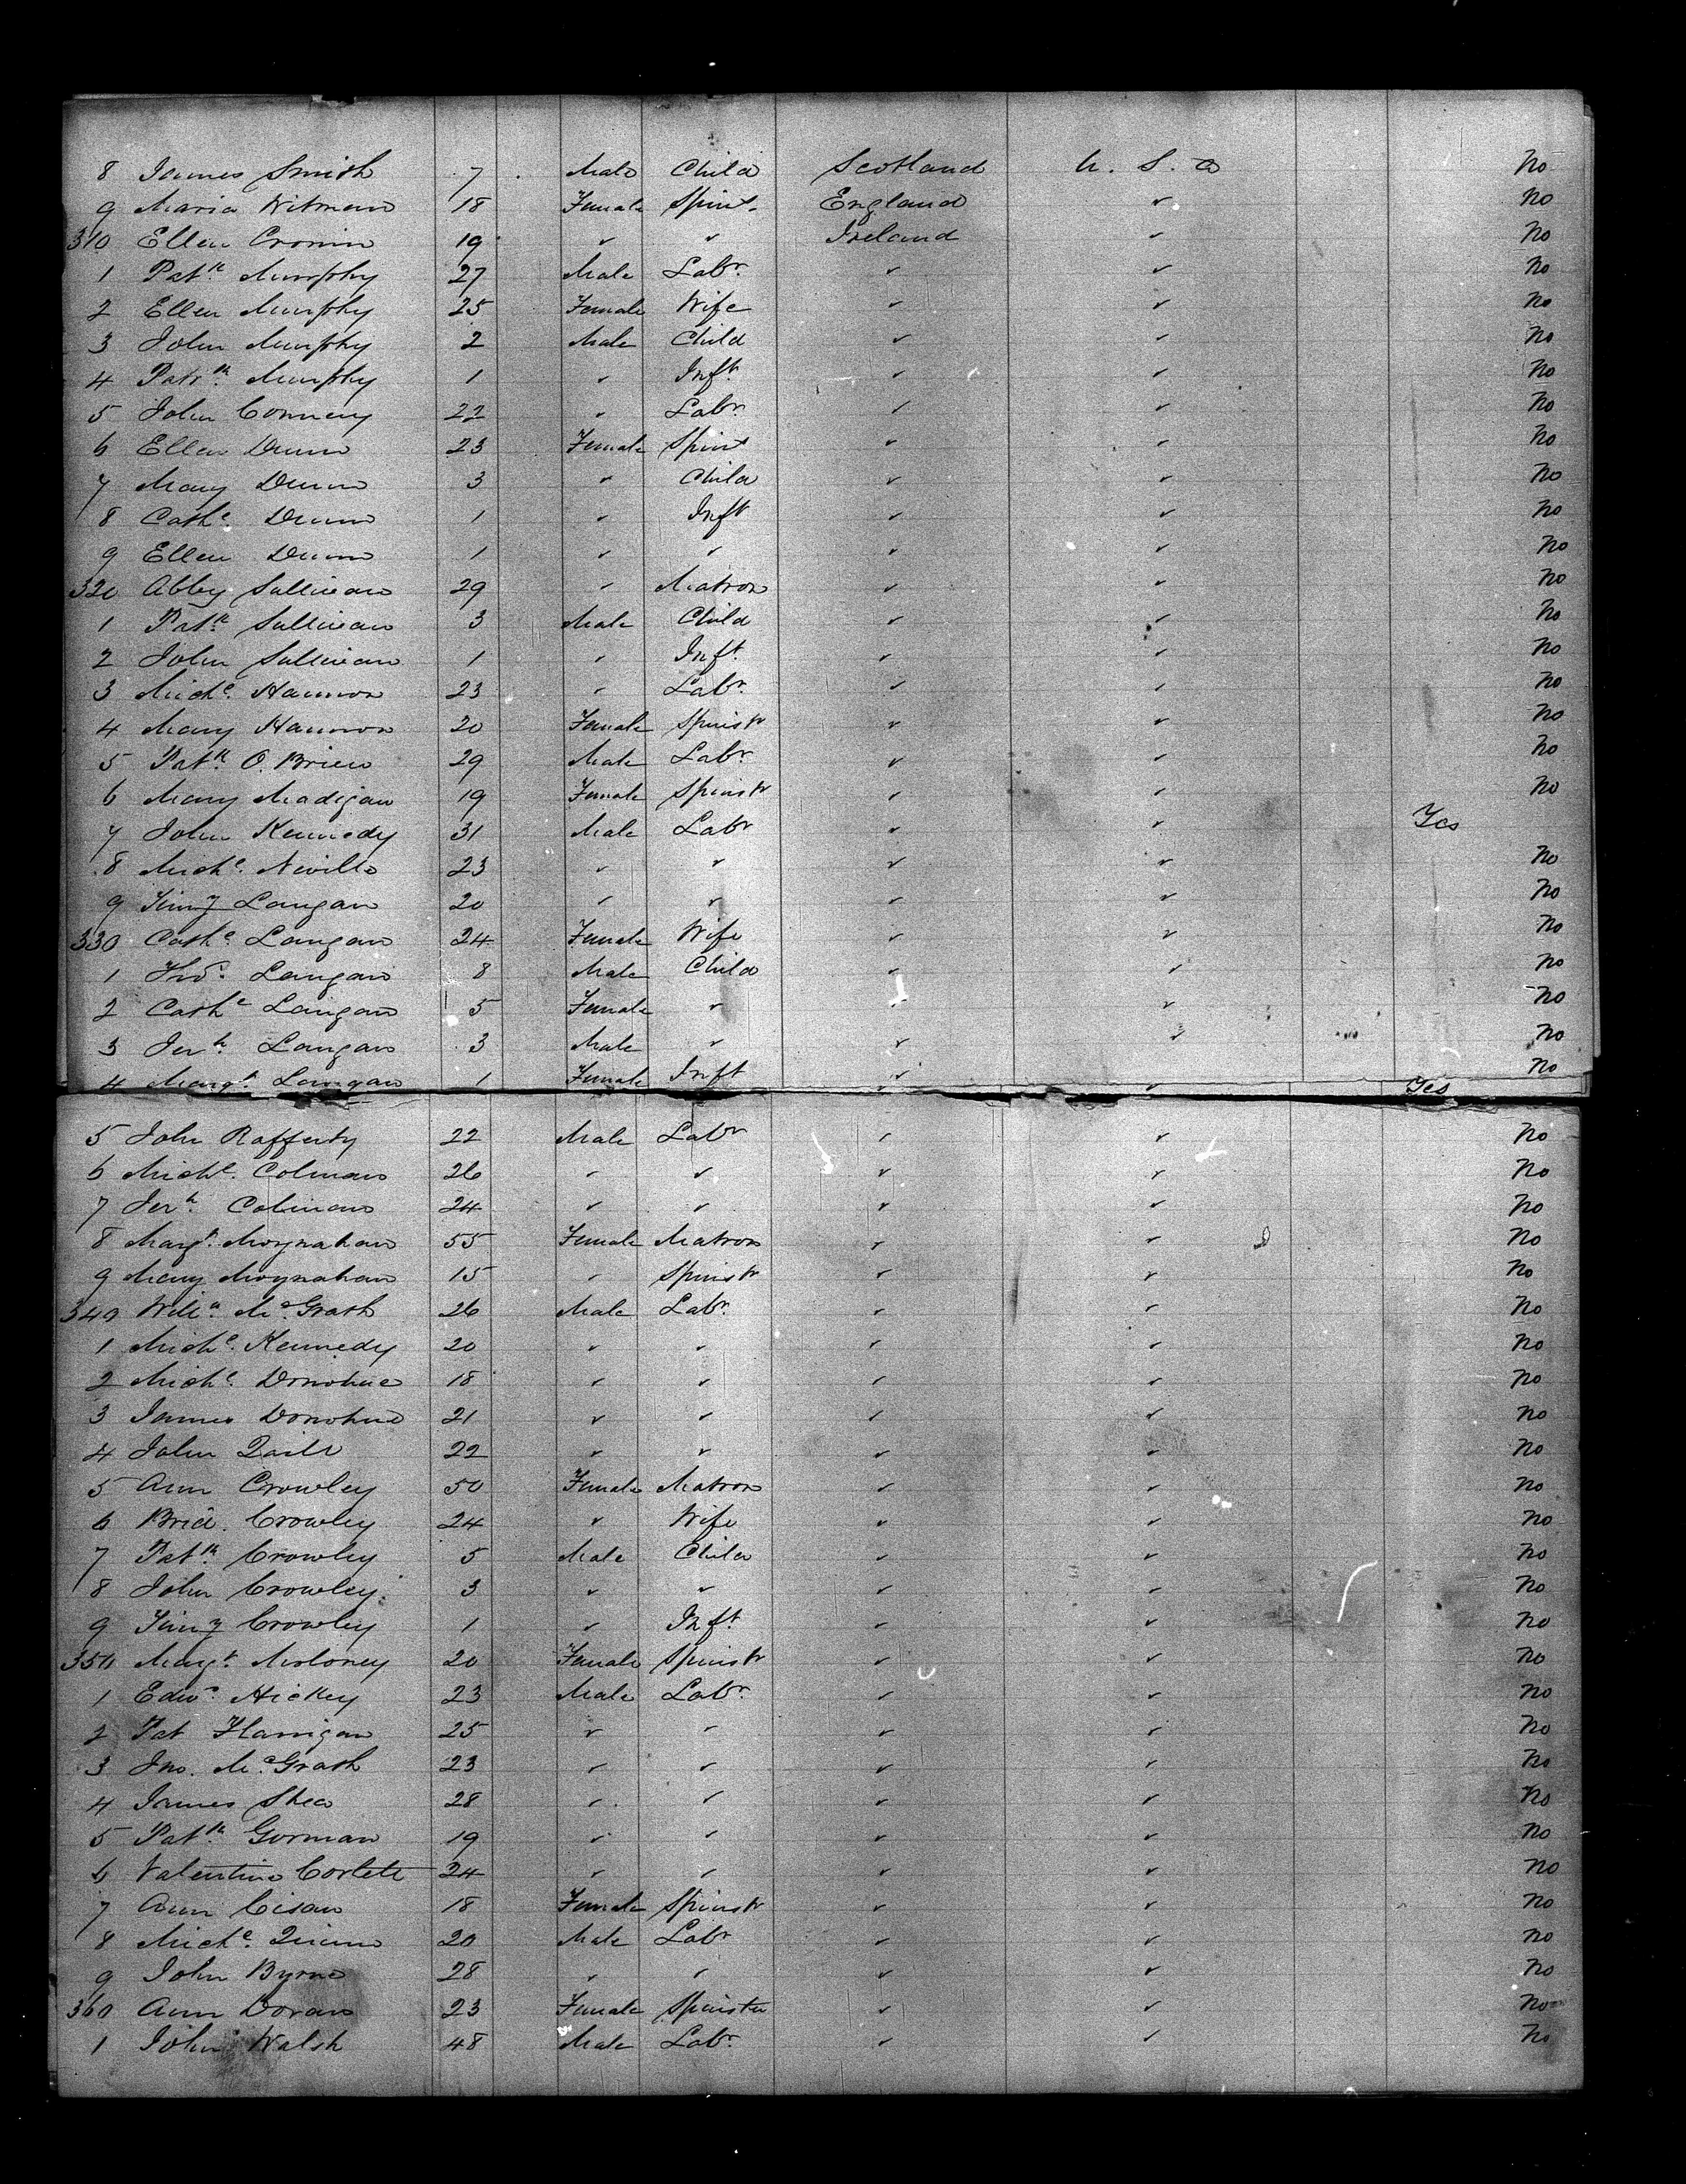 8 James Smith 7 Male Child Scotland U. S. a No
9 Maria Witman 18 Female Spinst. England ✓ No
310 Ellen Cronin 19 ✓ ✓ Ireland ✓ No
1 Patk. Murphy 27 Male Labr. ✓ ✓ No
2 Ellen Murphy 25 Female Wife ✓ ✓ No
3 John Murphy 2 Male Child ✓ ✓ No
4 Patrk. Murphy 1 ✓ Inft. ✓ ✓ No
5 John Connery 22 ✓ Labr. ✓ ✓ No
6 Ellen Dunn 23 Female Spinst ✓ ✓ No
7 Mary Dunn 3 ✓ Child ✓ ✓ No
8 Cathe. Dunn 1 ✓ Inft ✓ ✓ No
9 Ellen Dunn 1 ✓ ✓ ✓ ✓ No
320 Abbey Sullivan 29 ✓ Matron ✓ ✓ No
1 Patk. Sullivan 3 Male Child ✓ ✓ No
2 John Sullivan 1 ✓ Inft. ✓ ✓ No
3 Miche. Hannon 23 ✓ Labr. ✓ ✓ No
4 Mary Hannon 20 Female Spinstr ✓ ✓ No
5 Patk. O. Brien 29 Male Labr. ✓ ✓ No
6 Mary Madigan 19 Female Spinstr ✓ ✓ No
7 John Kennedy 31 Male Labr ✓ ✓ Yes
8 Miche. Neville 23 ✓ ✓ ✓ ✓ No
9 Timy Langan 20 ✓ ✓ ✓ ✓ No
330 Cathe. Langan 24 Female Wife ✓ ✓ No
1 Thos. Langan 8 Male Child ✓ ✓ No
2 Cathe Langan 5 Female ✓ ✓ ✓ No
3 Jerh. Langan 3 Male ✓ ✓ ✓ No
4 Margt. Langan 1 Female Inft ✓ No
✓ ✓ Yes
5 John Rafferty 22 Male Labr ✓ ✓ No
6 Michl. Colman 26 ✓ ✓ ✓ ✓ No
7 Jerh. Colman 24 ✓ ✓ ✓ ✓ No
8 Margt. Moynahan 55 Female Matron ✓ ✓ No
9 Mary Moynahan 15 ✓ Spinstr ✓ ✓ No
340 Willm. McGrath 26 Male Labr. ✓ ✓ No
1 Miche. Kennedy 20 ✓ ✓ ✓ ✓ No
2 Miche. Donohue 18 ✓ ✓ ✓ ✓ No
3 James Donohue 21 ✓ ✓ ✓ ✓ No
4 John Quill 22 ✓ ✓ ✓ ✓ No
5 Ann Crowley 50 Female Matron ✓ ✓ No
6 Brid. Crowley 24 ✓ Wife ✓ ✓ No
7 Patk. Crowley 5 Male Child ✓ ✓ No
8 John Crowley 3 ✓ ✓ ✓ ✓ No
9 Timy Crowley 1 ✓ Inft. ✓ ✓ No
350 Margt. Moloney 20 Female Spinstr ✓ ✓ No
1 Edwd. Hickey 23 Male Labr. ✓ ✓ No
2 Pat Flanigan 25 ✓ ✓ ✓ ✓ No
3 Jno. McGrath 23 ✓ ✓ ✓ ✓ No
4 James Shea 28 ✓ ✓ ✓ ✓ No
5 Patk. Gorman 19 ✓ ✓ ✓ ✓ No
6 Valentine Corlett 24 ✓ ✓ ✓ ✓ No
7 Ann Cisan 18 Female Spinstr ✓ ✓ No
8 Miche. Quinn 20 Male Labr ✓ ✓ No
9 John Byrne 28 ✓ ✓ ✓ ✓ No
360 Ann Doran 23 Female Spinster ✓ ✓ No
1 John Walsh 48 Male Labr. ✓ ✓ No